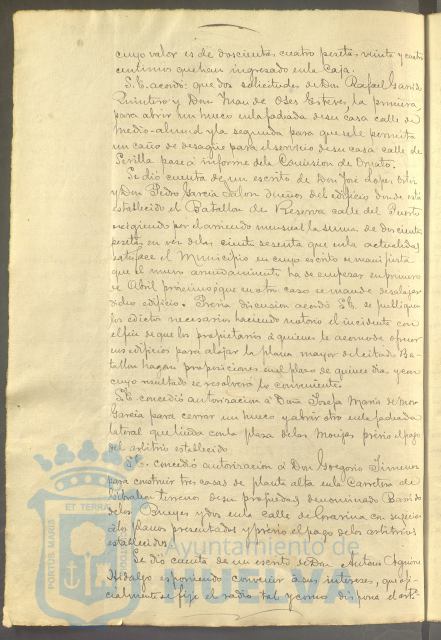 cuyo valor es de doscientas cuatro pesetas, veinte y cuatro
centimos que han ingresado en la Caja.
S.E. acordó: que dos solicitudes de Don Rafael Garrido
Quintero y Don Man. de Oses Esteves, la primera
para abrir un hueco en la fachada de su casa calle de
Medio-almud y la segunda para que se le permita
un caño de desagüe para el servicio de su casa calle de
Sevilla pase á informe de la Comision de Ornato.
Se dió cuenta de un escrito de Don José Lopez Ortiz
y Don Pedro Garcia Jalon dueños del edificio donde está
establecido el Batallon de Reserva calle del Puerto
exigiendo por el arriendo mensual la suma de doscientas
pesetas en vez de las ciento sesenta que en la actualidad
satisface el Municipio en cuyo escrito se manifiesta
que el nuevo arrendamiento ha de empezar en primero
de Abril próximo y que en otro caso se mande desalojar
dicho edificio. Previa discusion acordó S.E. se publiquen
los edictos necesarios haciendo notorio el incidente con
el fin de que los propietarios á quienes le acomode ofrecer
sus edificios para alojar la plana mayor del citado Ba-
tallon hagan proposiciones en el plazo de quince dias, y con
cuyo resultado se resolverá lo conveniente.
S.E. concedió autorizacion á Doña Josefa Marin de Mora
Garcia para cerrar un hueco y abrir otro en la fachada
lateral que linda con la plaza de las Monjas previo el pago
del arbitrio establecido.
S.E. concedió autorizacion á Don Gregorio Jimenez
para construir tres casas de planta alta en la Carretera de
Gibraleon terreno de su propiedad denominado Barrio
de los Bueyes y dos en la calle de Gravina con sujecion
á los planos presentados y previo el pago de los arbitrios
establecidos.
Se dió cuenta de un escrito de Don Antonio
Hidalgo exponiendo convenir á sus intereses, que ofi-
cialmente se fije el radio tal y como dispone el art.
PORTUS MARIS
ET TERRÆ
CUSTODIA
Ayuntamiento de
HUELVA